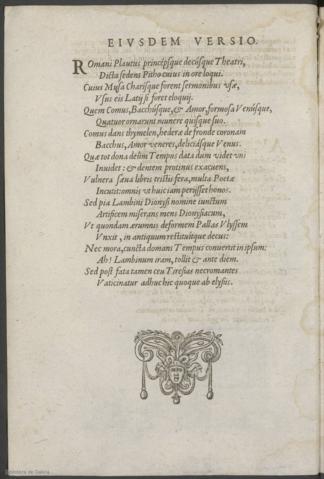 EIVSDEM VERSIO.
ROmani Plautus princépsque decúsque Theatri,
Dicta sedens Pitho cuius in ore loqui.
Cuius Musa Charisque forent sermonibus vsæ,
Vsus eis Latij si foret eloquij.
Quem Comus, Bacchúsque, & Amor, formosa Venúsque,
Quatuor ornarunt munere quisque suo.
Comus dans thymelen, hederæ de fronde coronam
Bacchus, Amor veneres, deliciásque Venus.
Quæ tot dona delim Tempus data dum videt vni
Inuidet: & dentem protinus exacuens,
Vulnera sæua libris tristis fera, multa Poetæ
Incutit: omnis vt huic iam perijsset honos.
Sed pia Lambini Dionysî nomine iunctum
Artificem miserans mens Dionysiacum,
Vt quondam ærumnis deformem Pallas Vlyssem
Vnxit, in antiquum restituitque decus:
Nec mora, cuncta domans Tempus conuertit in ipsum:
Ah! Lambinum iram, tollit & ante diem.
Sed post fata tamen ceu Tiresias necromantes
Vaticinatur adhuc hic quoque ab elysiis.
Biblioteca de Galicia